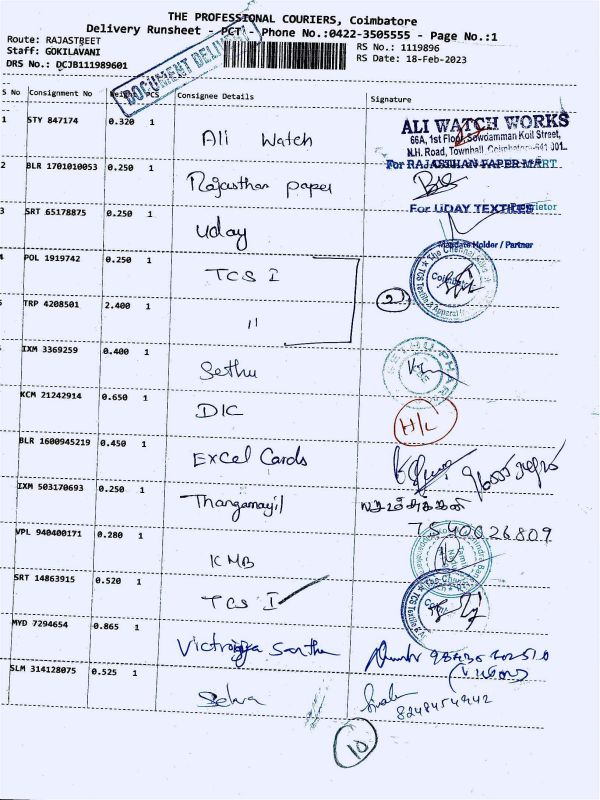 THE PROFESSIONAL COURIERS, Coimbatore
Delivery Runsheet - PCT - Phone No.:0422-3505555 - Page No.:1
Route: RAJASTREET
Staff: GOKILAVANI
DRS No.: DCJB111989601
RS No.: 1119896
RS Date: 18-Feb-2023
DOCUMENT DELIVERY
S No Consignment No PCS Consignee Details Signature
1 STY 847174 0.320 1 Ali Watch
ALI WATCH WORKS
66A, 1st Floor, Sowdamman Koil Street,
N.H. Road, Townhall, Coimbatore-641 001.
2 BLR 1701010053 0.250 1 Rajasthan paper
For RAJASTHAN PAPER MART
Proprietor
3 SRT 65178875 0.250 1 Uday
For UDAY TEXTILES
Mandate Holder / Partner
4 POL 1919742 0.250 1 TCS I
Coimbatore
2
5 TRP 4208501 2.400 1 "
IXM 3369259 0.400 1 Sethu
SETHU PHARMA
KCM 21242914 0.650 1 DIC
H/L
BLR 1600945219 0.450 1 Excel Cards
IXM 503170693 0.250 1 Thangamayil
7540026809
VPL 940400171 0.280 1 KMB
SRT 14863915 0.520 1 TCS I
MYD 7294654 0.865 1
SLM 314128075 0.525 1 Selva
8248454942
10